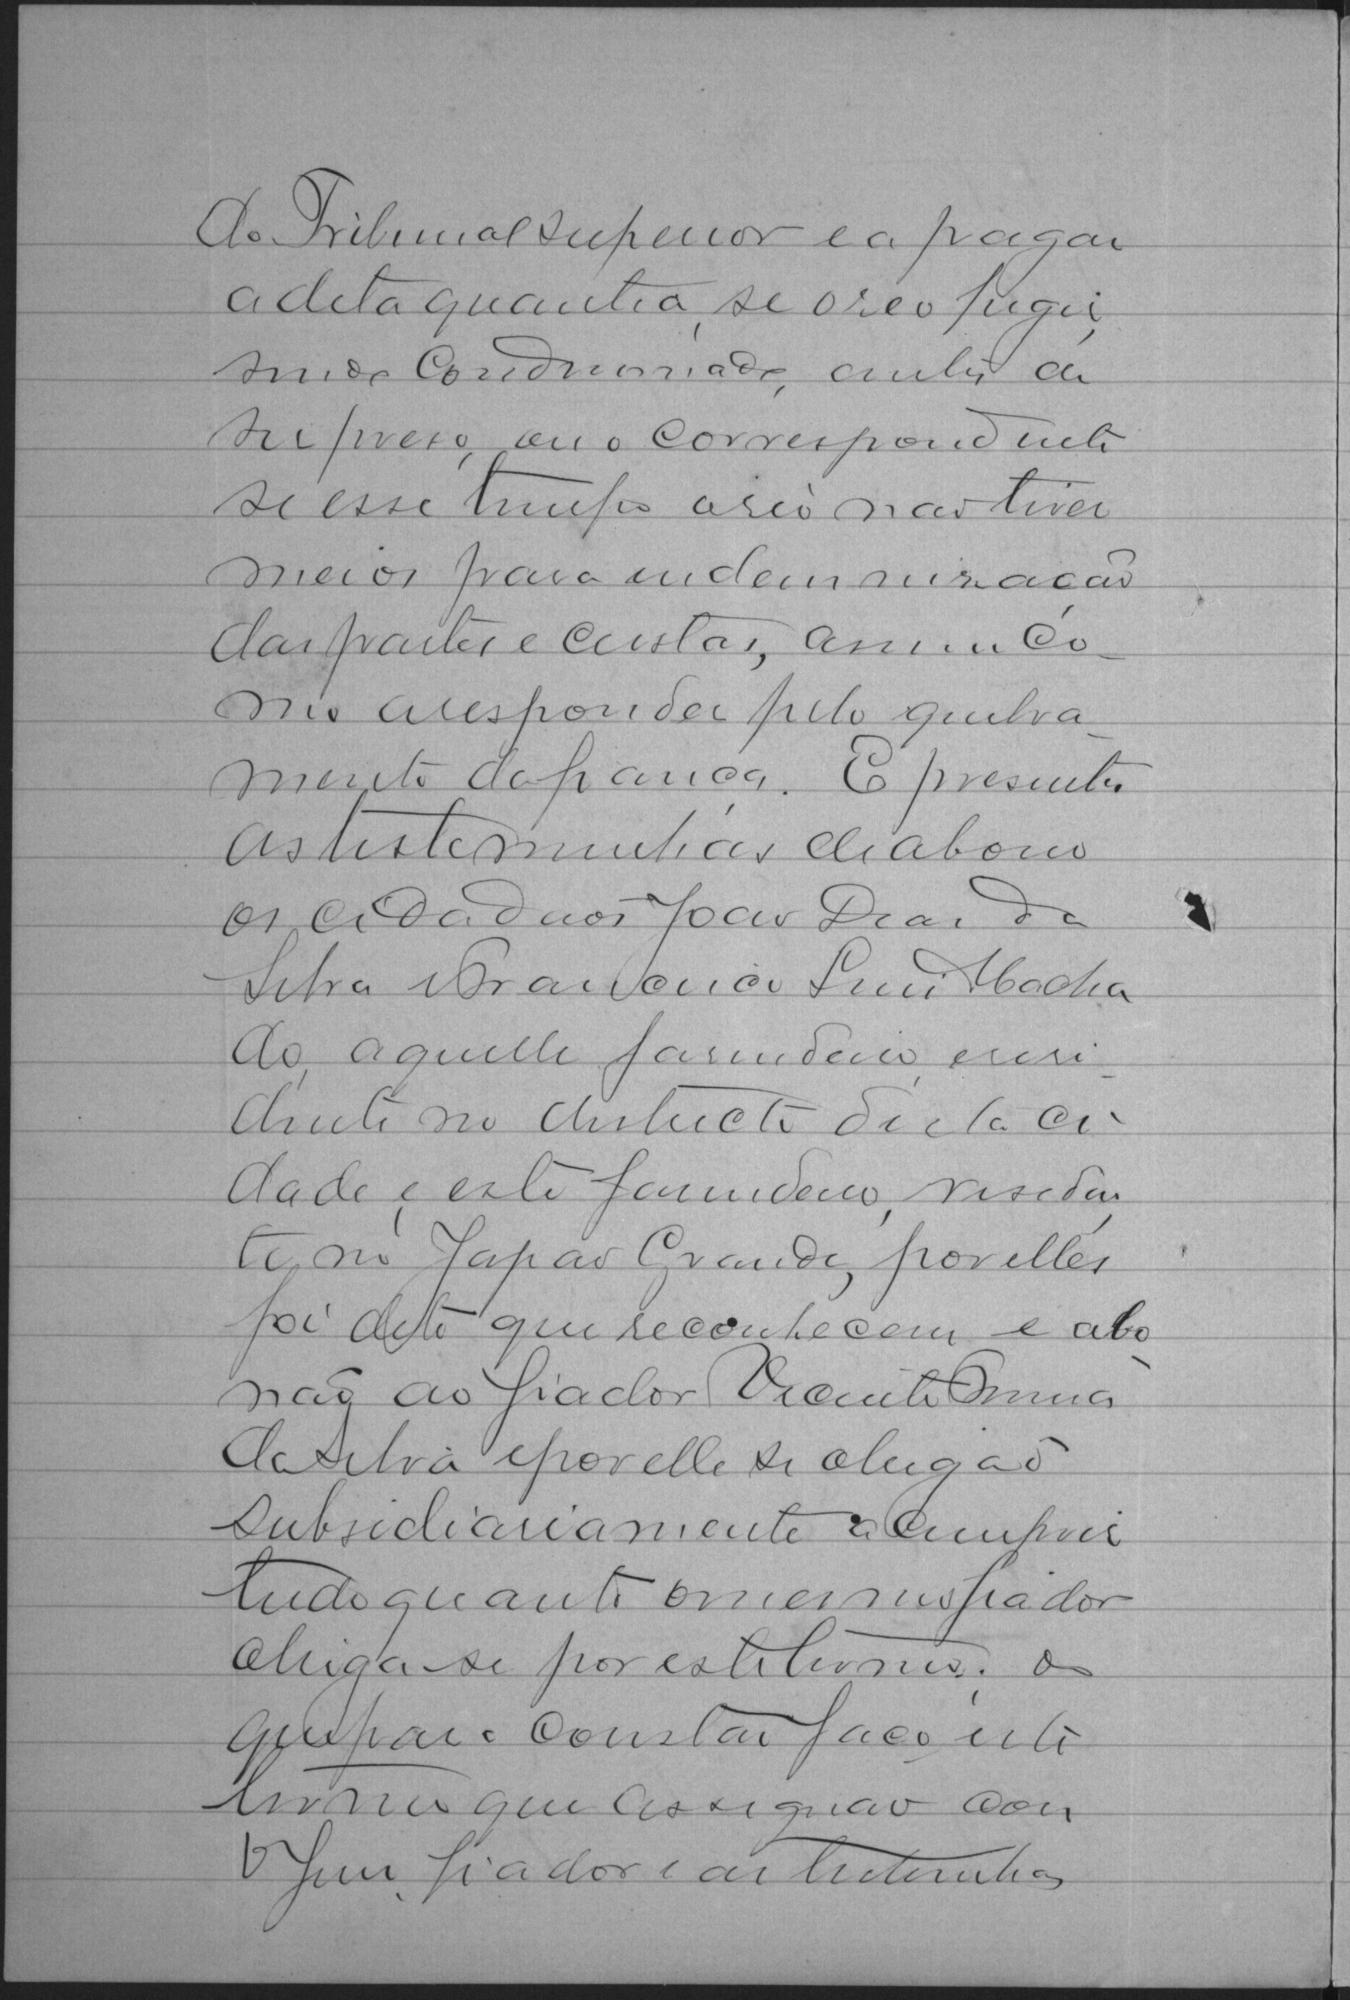 do Tribunal superior e a pagar
a dita quantia, se o reo fugir,
sendo condemnado, antes de
ser preso, ou o correspondente
se esse tempo o reo não tiver
meios para indemnização
das partes e custas, assim co-
mo a responder pelo quebra-
mento da fiança. E presentes
as testemunhas de abono
os cidadãos João Dias da
Silva e Francisco Luis Macha
do, aquelle fasendeiro, e resi-
dente no districto desta ci-
dade, e este fasendeiro, residen
te no Japão Grande, por elles
foi dito que reconhecem e abo
não ao fiador Vicente
da Silva e por elle se obrigão
subsidiariamente a cumprir
tudo quanto o mesmo fiador
obriga-se por este termo; do
que para constar faço este
termo que assignão com
o Juiz, fiador e as testemunhas